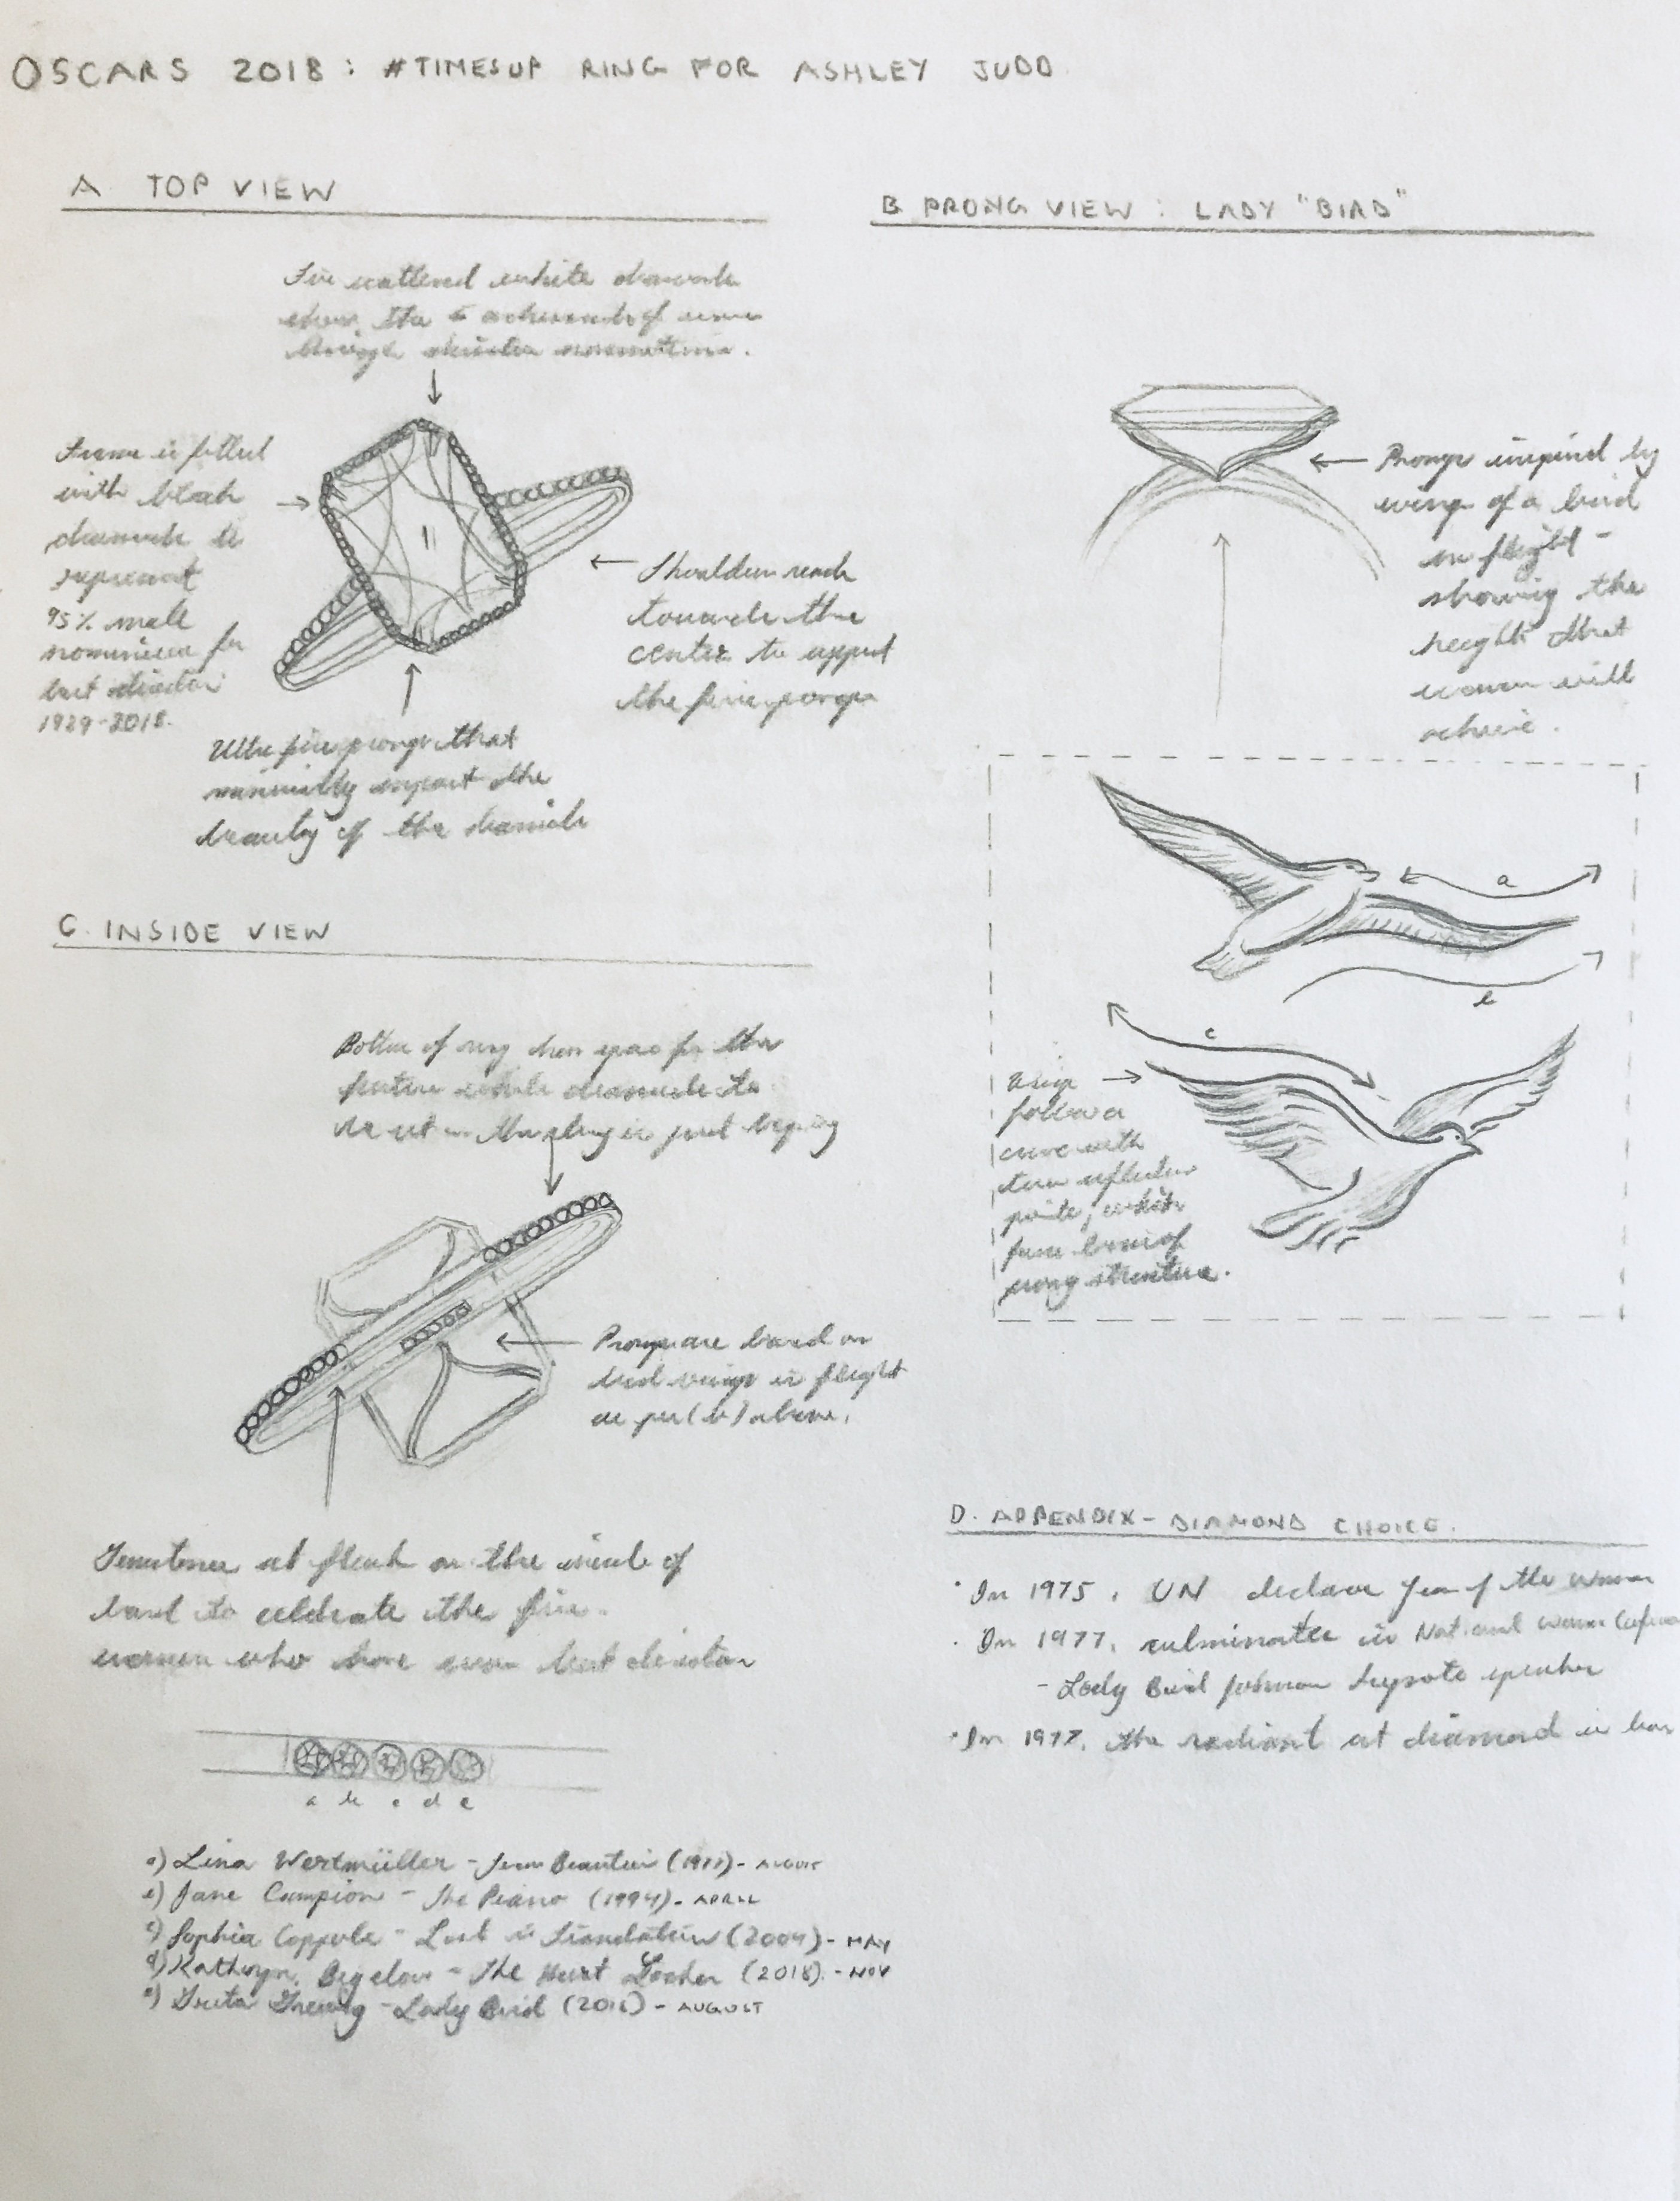 OSCARS 2018: #TIMESUP RING FOR ASHLEY JUDD
A TOP VIEW
Five scattered white diamonds
show the 5 achievements of women
through director nominations.
Frame is filled
with black
diamonds to
represent
95% male
nominees for
best director
1929-2018.
Shoulders reach
towards the
center to support
the five prongs
Ultra fine prongs that
minimally impact the
beauty of the diamond
B PRONG VIEW: LADY "BIRD"
Prongs inspired by
wings of a bird
in flight -
showing the
heights that
women will
achieve.
a
b
c
Wings
follow a
curve with
two inflection
points, which
form basis of
prong structure.
C. INSIDE VIEW
Bottom of ring shows space for the
future white diamonds to
be set as the story is just beginning
Prongs are based on
bird wings in flight
as per (b) above.
Gemstones set flush on the inside of
band to celebrate the five
women who have won best director
a b c d e
a) Lina Wertmüller - Seven Beauties (1977) - AUGUST
b) Jane Campion - The Piano (1994) - APRIL
c) Sophia Coppola - Lost in Translation (2004) - MAY
d) Kathryn Bigelow - The Hurt Locker (2018) - NOV
e) Greta Gerwig - Lady Bird (2018) - AUGUST
D. APPENDIX - DIAMOND CHOICE.
· In 1975, UN declare Year of the Woman
· In 1977, culminates in National Women
- Lady Bird Johnson keynote speaker
· In 1977, the radiant cut diamond is